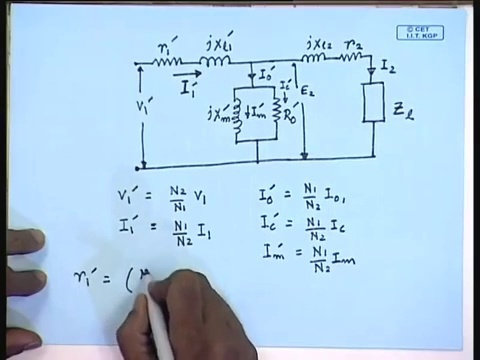 © CET
I.I.T. KGP
r₁′ jxₗ₁′ jxₗ₂ r₂
I₁′ I₀′ I₂
V₁′ jx′ₘ I′ₘ I꜀′ R₀′ E₂ Zₗ
V₁′ = N₂/N₁ V₁ I₀′ = N₁/N₂ I₀₁
I₁′ = N₁/N₂ I₁ I꜀′ = N₁/N₂ I꜀
Iₘ′ = N₁/N₂ Iₘ
r₁′ = (